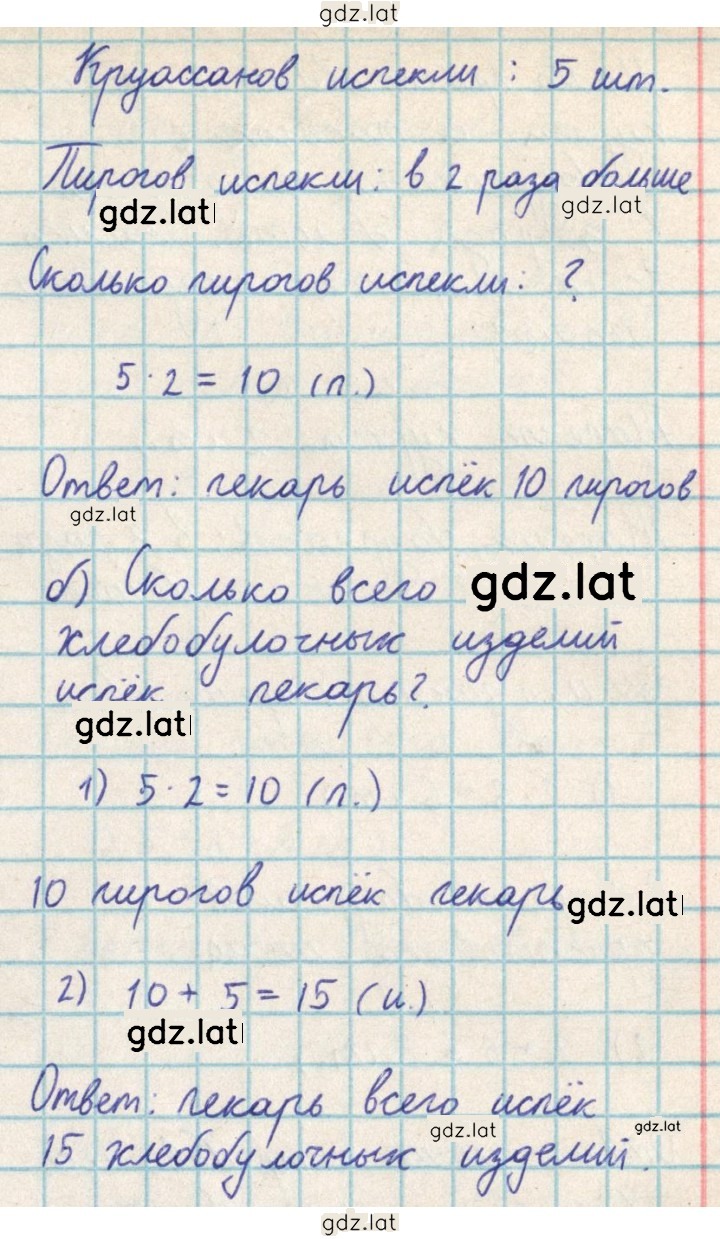 gdz.lat
Круассанов испекли : 5 шт.
Пирогов испекли: в 2 раза больше
gdz.lat gdz.lat
Сколько пирогов испекли: ?
5 · 2 = 10 (п.)
Ответ: пекарь испёк 10 пирогов
gdz.lat
б) Сколько всего gdz.lat
хлебобулочных изделий
испёк пекарь?
gdz.lat
1) 5 · 2 = 10 (п.)
10 пирогов испёк пекарь gdz.lat
2) 10 + 5 = 15 (и.)
gdz.lat
Ответ: пекарь всего испёк
gdz.lat gdz.lat
15 хлебобулочных изделий.
gdz.lat